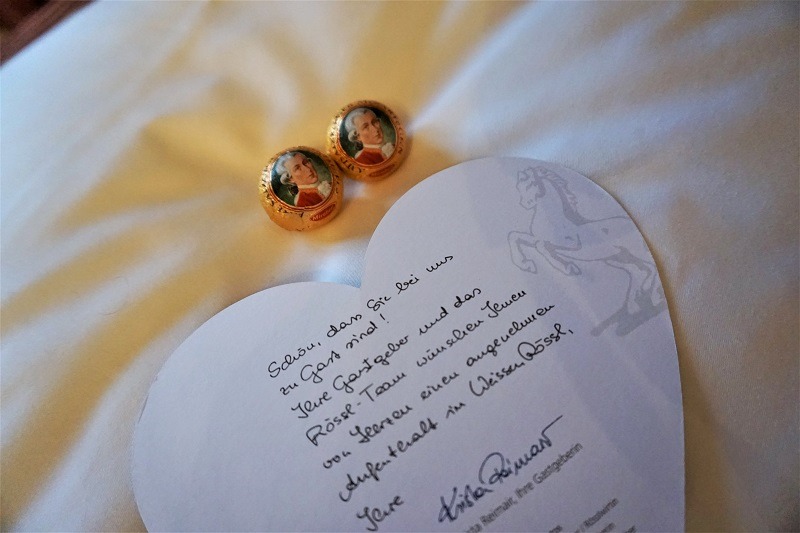 Schön, dass Sie bei uns
zu Gast sind!
Ihre Gastgeber und das
Rössl-Team wünschen Ihnen
von Herzen einen angenehmen
Aufenthalt im Weissen Rössl,
Ihre
Reimair, Ihre Gastgeberin